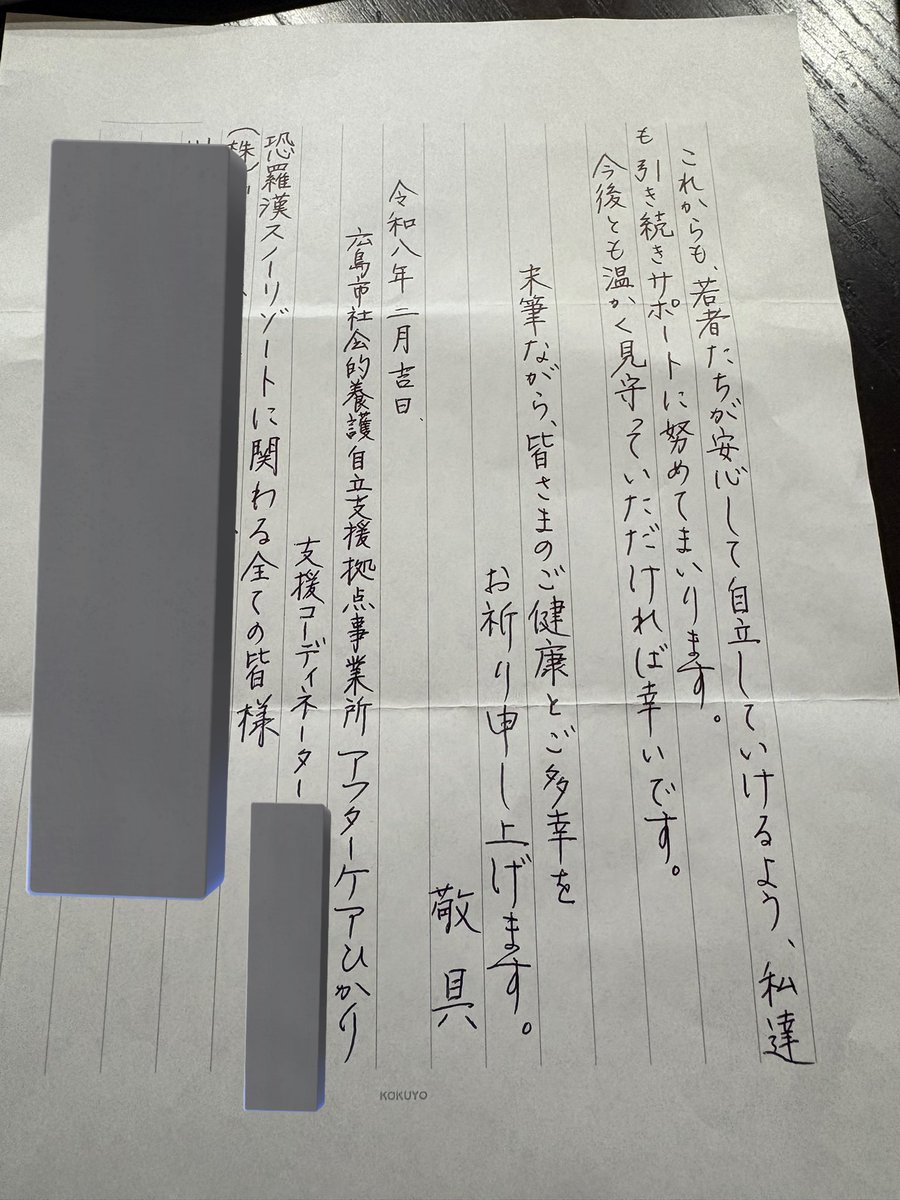 これからも、若者たちが安心して自立していけるよう、私達
も引き続きサポートに努めてまいります。
今後とも温かく見守っていただければ幸いです。
末筆ながら、皆さまのご健康とご多幸を
お祈り申し上げます。
敬具
令和八年二月吉日、
広島市社会的養護自立支援拠点事業所 アフターケアひかり
支援コーディネーター
恐羅漢スノーリゾートに関わる全ての皆様
(株)
KOKUYO